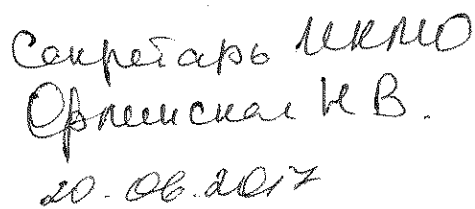 Секретарь ИКМО
Орлинская Н В.
20.06.2017